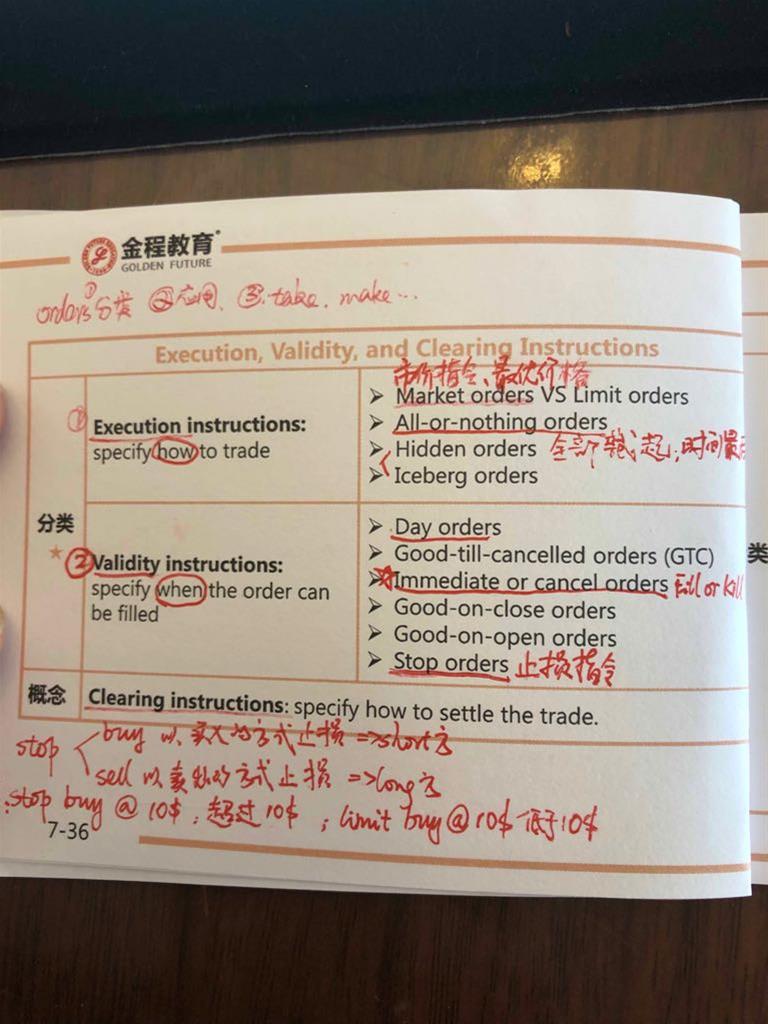 金程教育®
GOLDEN FUTURE
orders分类 ②应用、③.take、make…
①
Execution, Validity, and Clearing Instructions
分类
①
Execution instructions:
specify how to trade
市价指令、最优价格
➤ Market orders VS Limit orders
➤ All-or-nothing orders
➤ Hidden orders 全部藏起;时间最
➤ Iceberg orders
★
② Validity instructions:
specify when the order can
be filled
➤ Day orders
➤ Good-till-cancelled orders (GTC)
➤ Immediate or cancel orders Fill or kill
➤ Good-on-close orders
➤ Good-on-open orders
➤ Stop orders 止损指令
概念
Clearing instructions: specify how to settle the trade.
stop
buy 以买入的方式止损 => short方
sell 以卖出的方式止损 => long方
:stop buy @ 10$; 超过10$ ; limit buy @ 10$ 低于10$
7-36
类